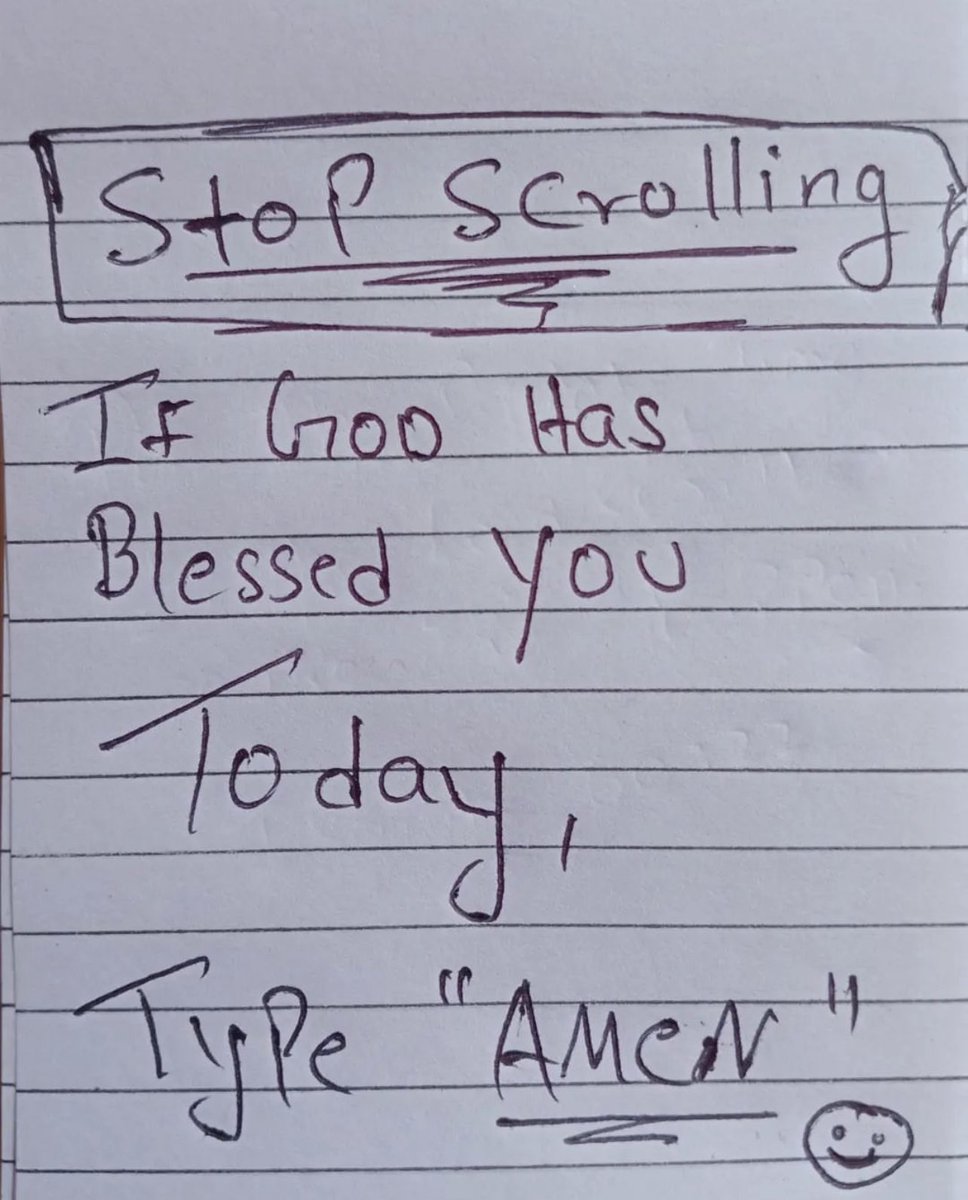 Stop Scrolling
If GOD Has
Blessed you
Today,
Type "AMeN"